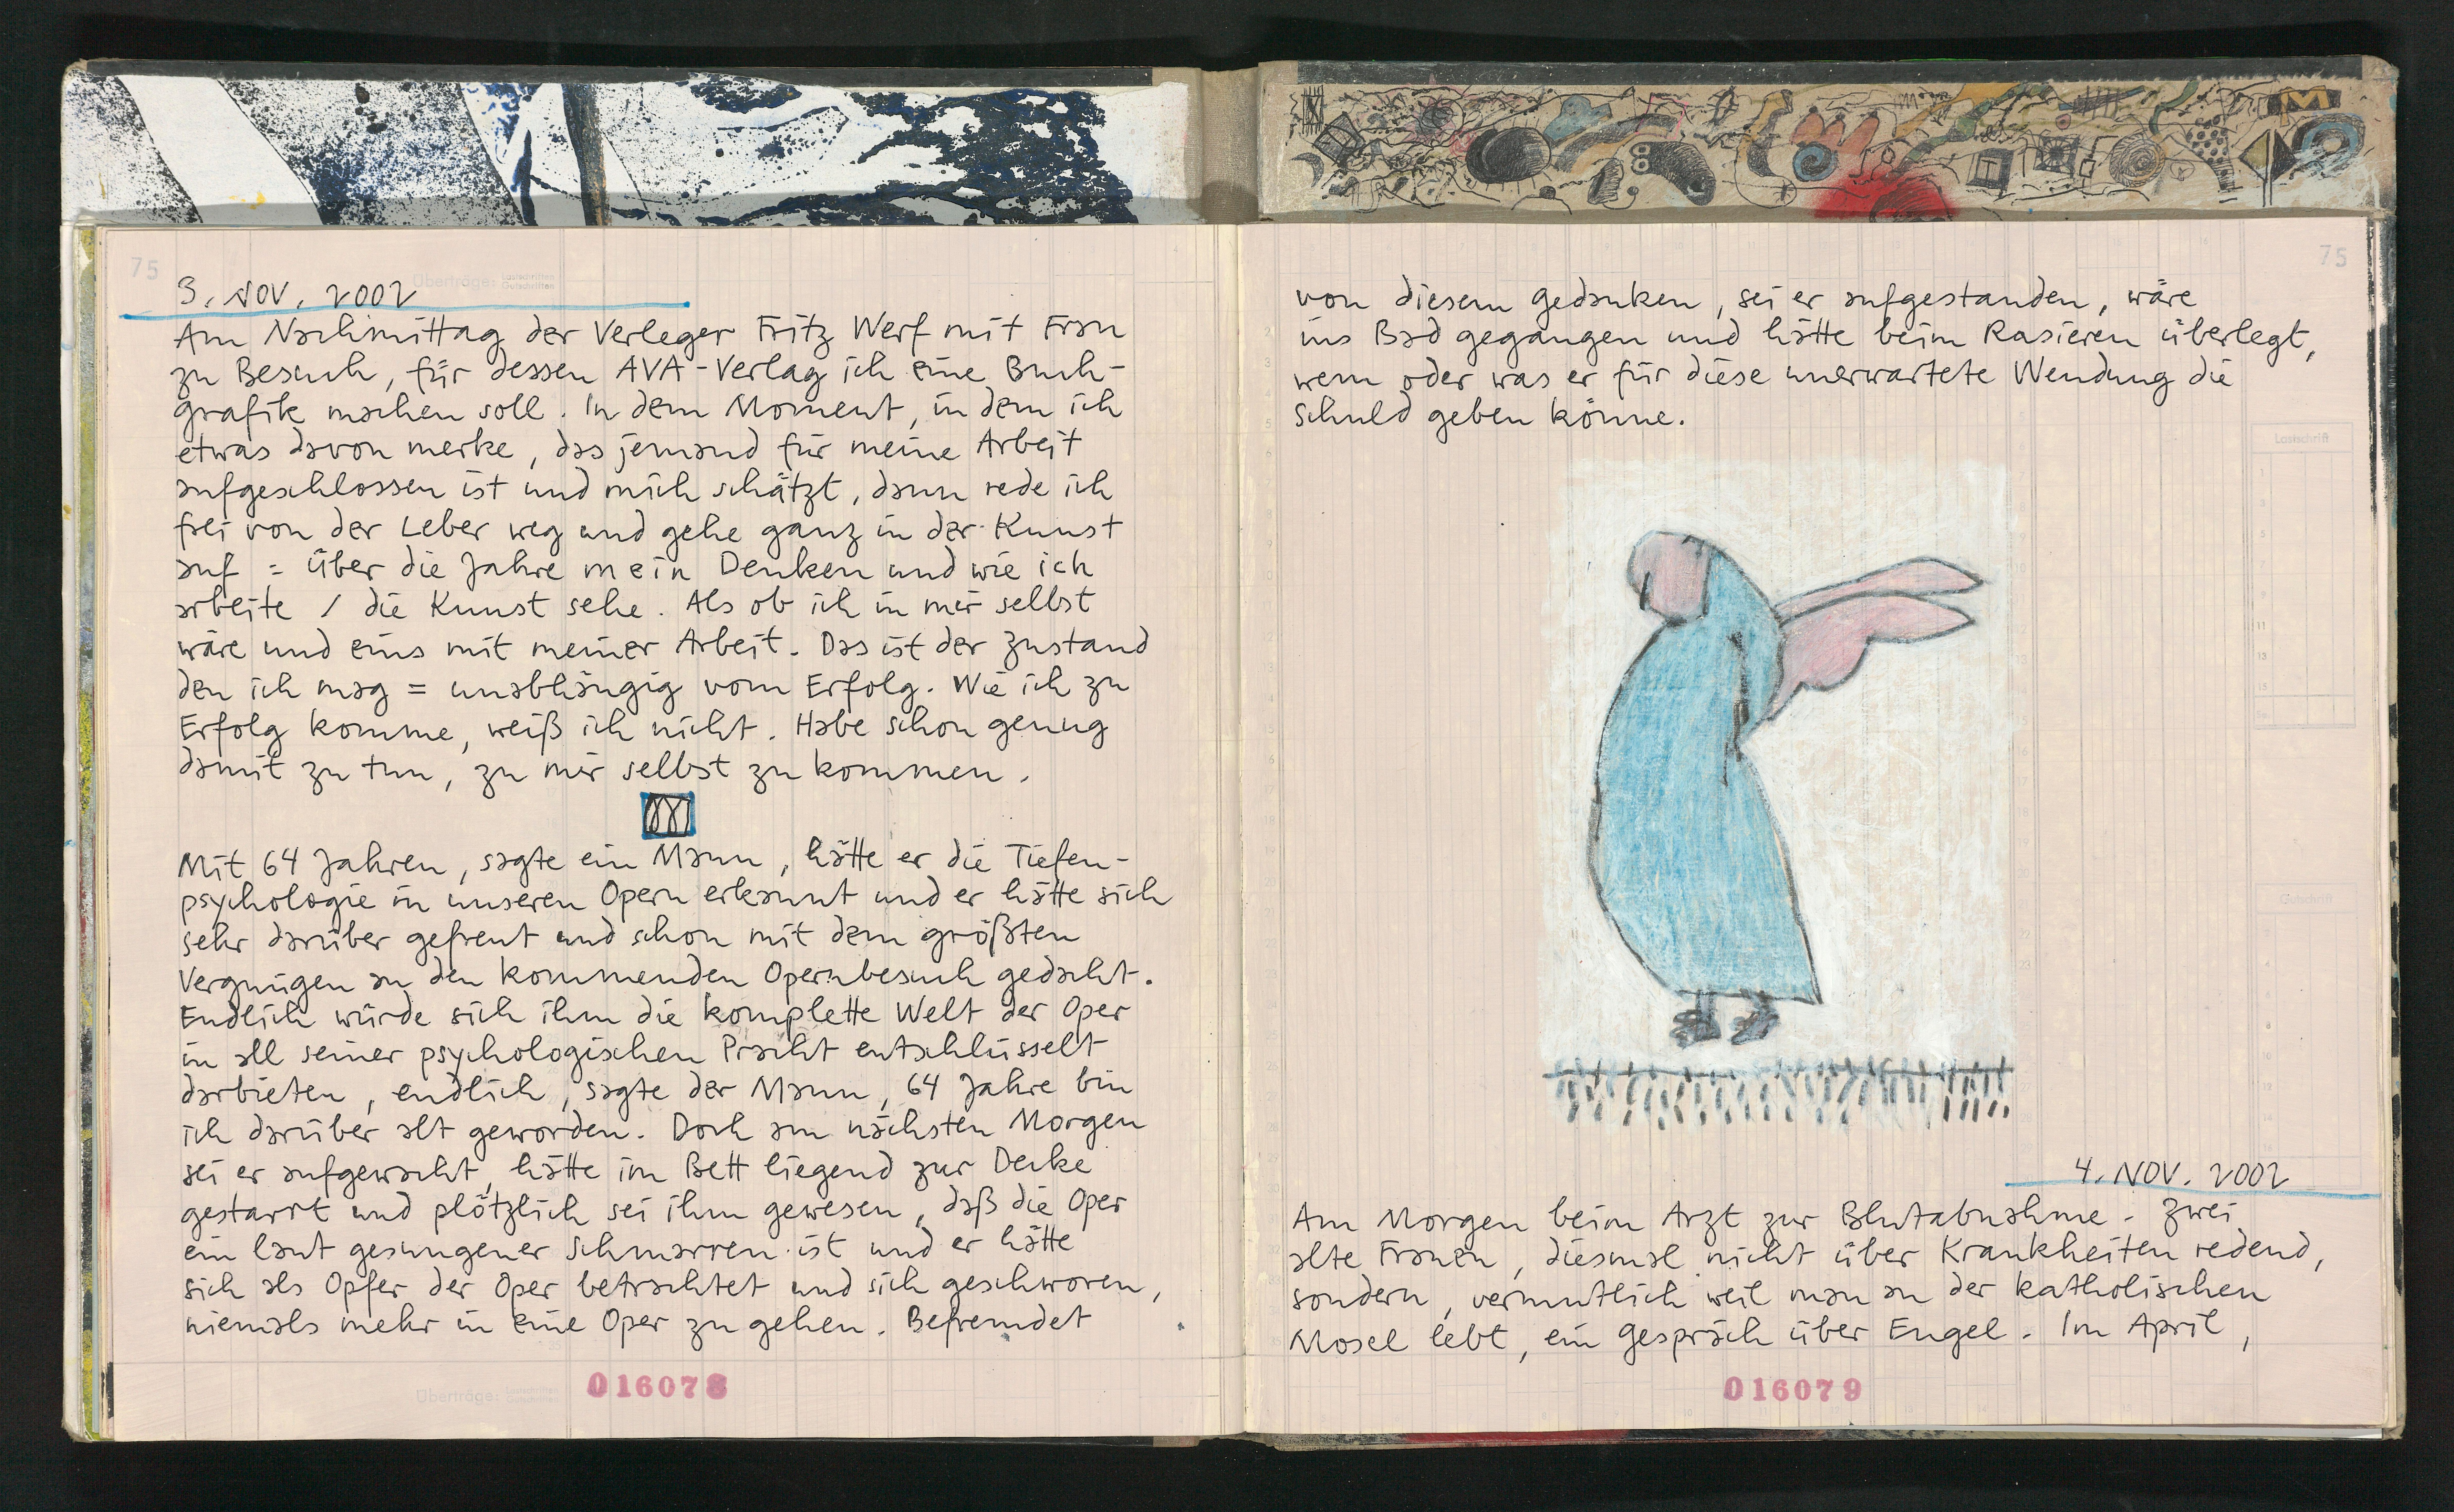 75
Überträge: Lastschriften
Gutschriften
3. NOV. 2002
Am Nachmittag der Verleger Fritz Werf mit Frau
zu Besuch, für dessen AVA-Verlag ich eine Buch-
grafik machen soll. In dem Moment, in dem ich
etwas davon merke, das jemand für meine Arbeit
aufgeschlossen ist und mich schätzt, dann rede ich
frei von der Leber weg und gehe ganz in der Kunst
auf = über die Jahre mein Denken und wie ich
arbeite / die Kunst sehe. Als ob ich in mir selbst
wäre und eins mit meiner Arbeit. Das ist der Zustand
den ich mag = unabhängig vom Erfolg. Wie ich zu
Erfolg komme, weiß ich nicht. Habe schon genug
damit zu tun, zu mir selbst zu kommen.
Mit 64 Jahren, sagte ein Mann, hätte er die Tiefen-
psychologie in unseren Opern erkannt und er hätte sich
sehr darüber gefreut und schon mit dem größten
Vergnügen an den kommenden Opernbesuch gedacht.
Endlich würde sich ihm die komplette Welt der Oper
in all seiner psychologischen Pracht entschlüsselt
darbieten, endlich, sagte der Mann, 64 Jahre bin
ich darüber alt geworden. Doch am nächsten Morgen
sei er aufgewacht, hätte im Bett liegend zur Decke
gestarrt und plötzlich sei ihm gewesen, daß die Oper
ein laut gesungener Schmarren ist und er hätte
sich als Opfer der Oper betrachtet und sich geschworen,
niemals mehr in eine Oper zu gehen. Befremdet
Überträge: Lastschriften
Gutschriften
016078
75
von diesem Gedanken, sei er aufgestanden, wäre
ins Bad gegangen und hätte beim Rasieren überlegt,
wem oder was er für diese unerwartete Wendung die
Schuld geben könne.
Lastschrift
Gutschrift
4. NOV. 2002
Am Morgen beim Arzt zur Blutabnahme. Zwei
alte Frauen, diesmal nicht über Krankheiten redend,
sondern, vermutlich weil man an der katholischen
Mosel lebt, ein Gespräch über Engel. Im April,
016079